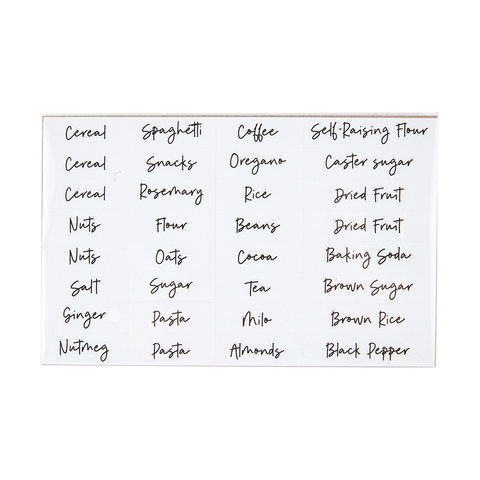 Cereal Spaghetti Coffee Self-Raising Flour
Cereal Snacks Oregano Caster sugar
Cereal Rosemary Rice Dried Fruit
Nuts Flour Beans Dried Fruit
Nuts Oats Cocoa Baking Soda
Salt Sugar Tea Brown Sugar
Ginger Pasta Milo Brown Rice
Nutmeg Pasta Almonds Black Pepper